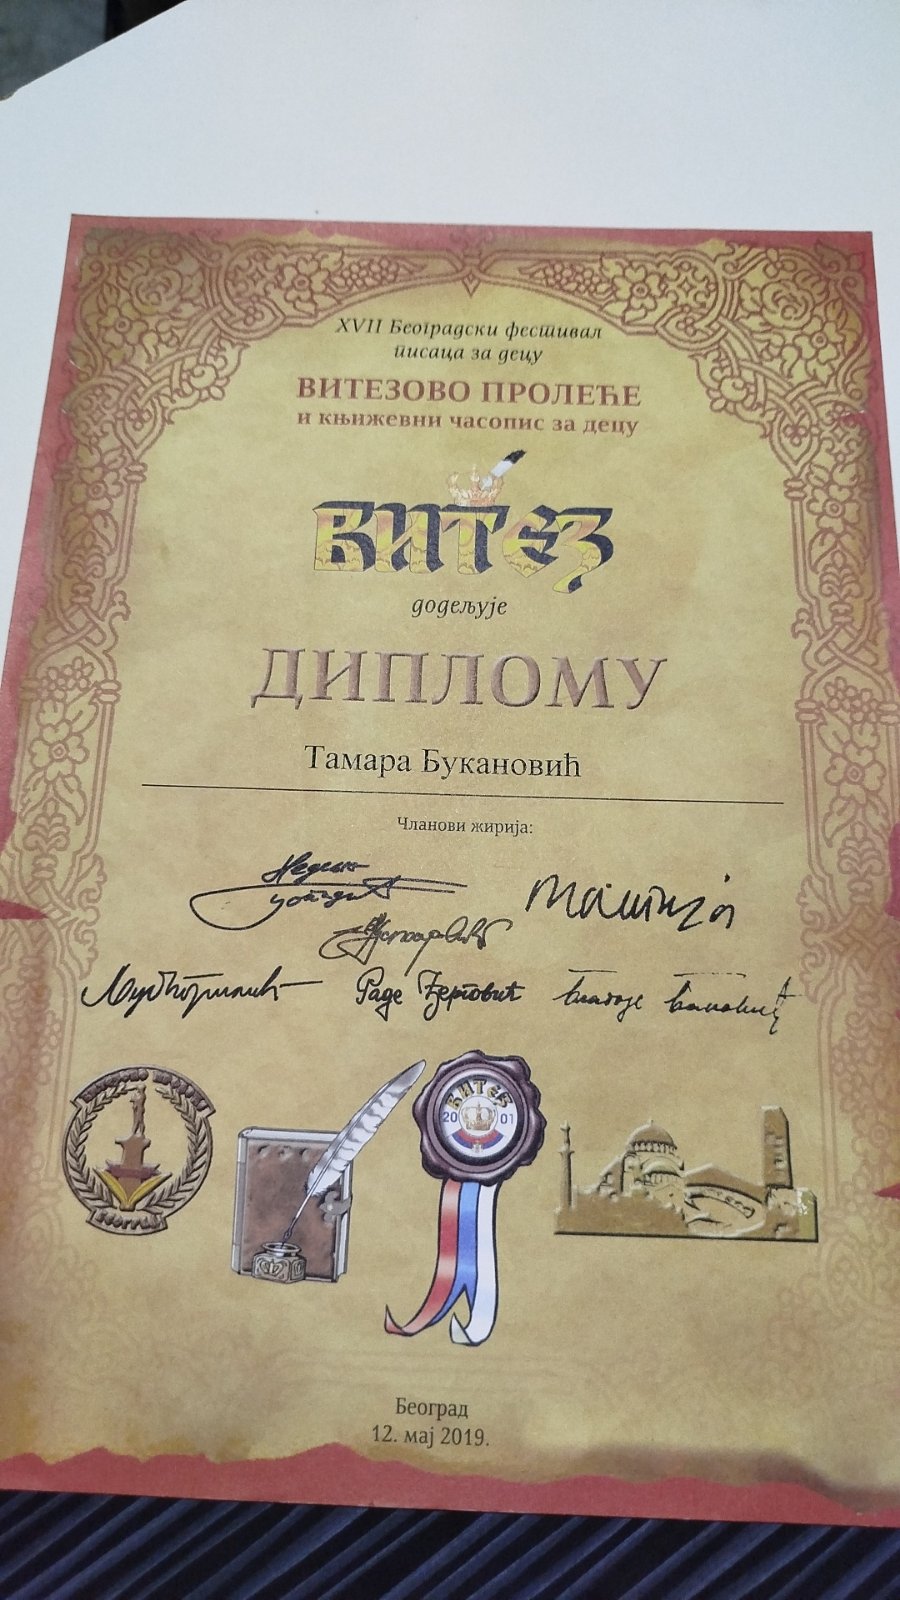 XVII Београдски фестивал
писаца за децу
ВИТЕЗОВО ПРОЛЕЋЕ
и књижевни часопис за децу
ВИТЕЗ
додељује
ДИПЛОМУ
Тамара Букановић
Чланови жирија:
Раде
ВИТЕЗ
20 01
Београд
12. мај 2019.